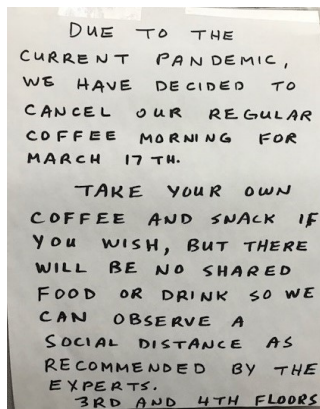 DUE TO THE
CURRENT PANDEMIC,
WE HAVE DECIDED TO
CANCEL OUR REGULAR
COFFEE MORNING FOR
MARCH 17TH.
TAKE YOUR OWN
COFFEE AND SNACK IF
YOU WISH, BUT THERE
WILL BE NO SHARED
FOOD OR DRINK SO WE
CAN OBSERVE A
SOCIAL DISTANCE AS
RECOMMENDED BY THE
EXPERTS.
3RD AND 4TH FLOORS